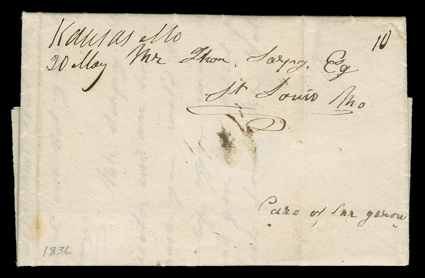 Kansas Mo
10
20 May Mr Thom. Sarpy, Eq
St Louis Mo
Care of
1836